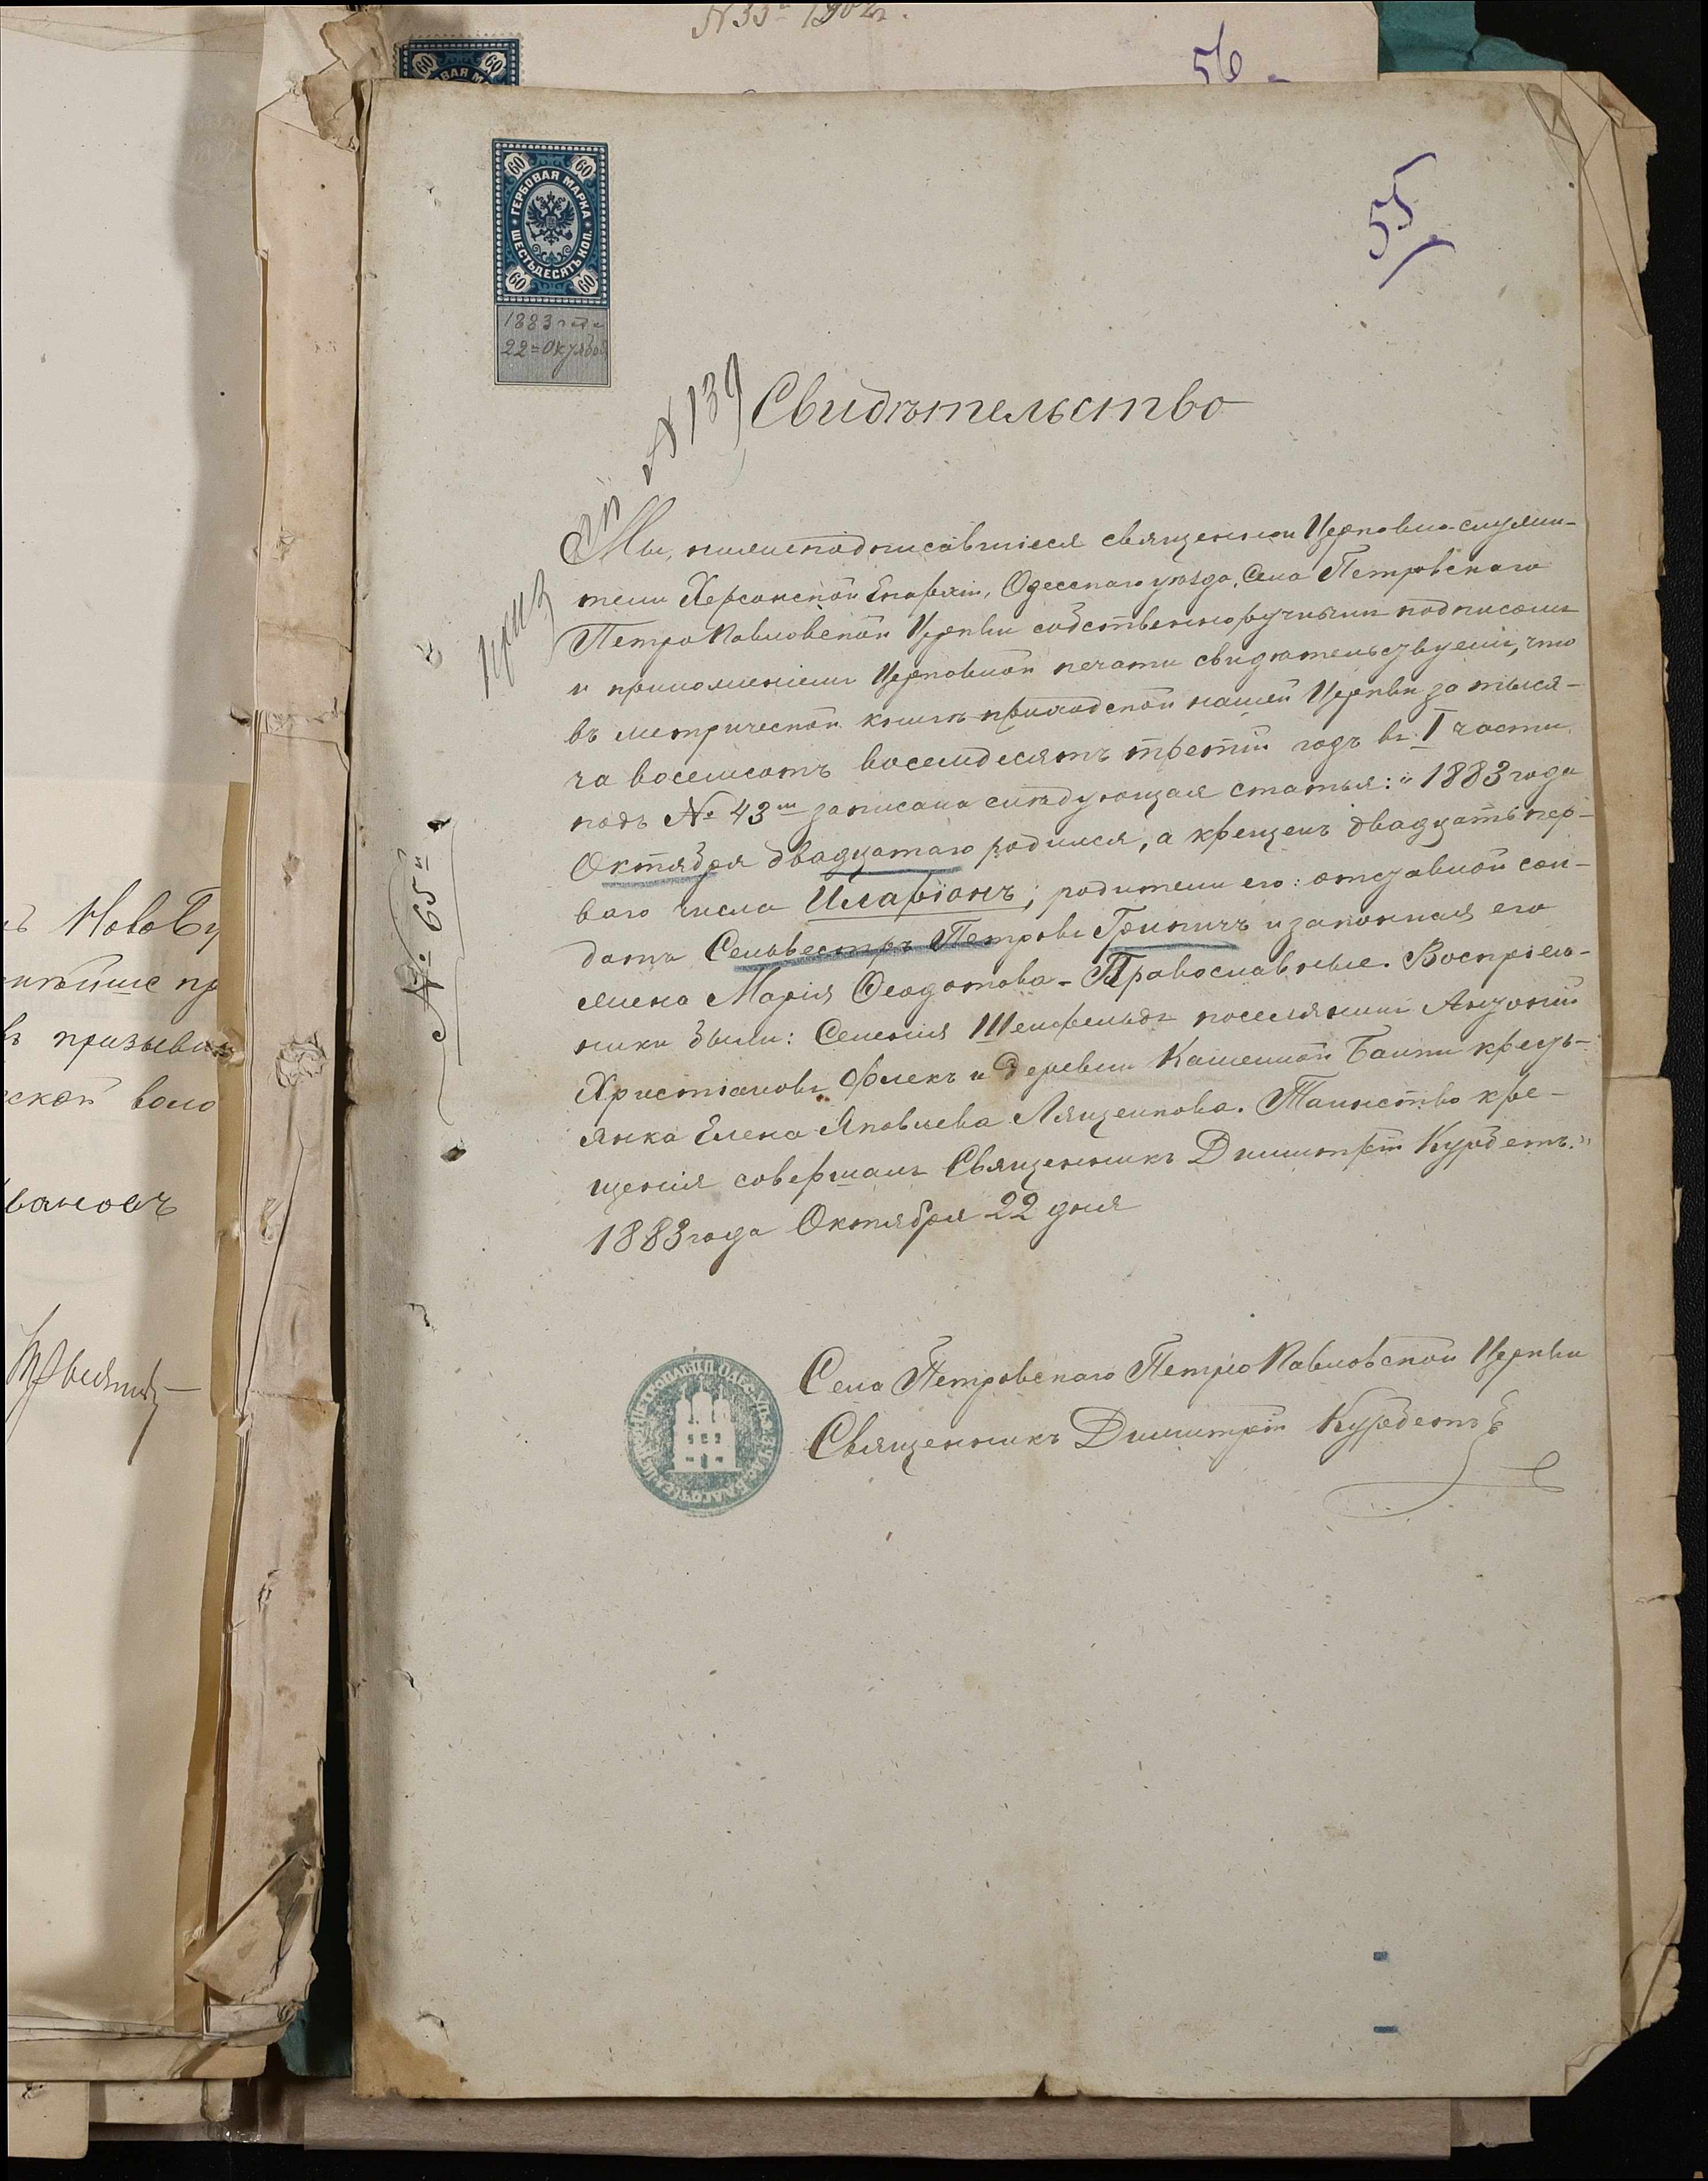 56
55
60 60
ГЕРБОВАЯ МАРКА
ШЕСТЬДЕСЯТЪ КОП.
60 60
1883 года
22 = Октября
№ 139
Свидѣтельство
Мы, нижеподписавшіеся священно и Церковно-служи-
тели Херсонской Епархіи, Одесскаго уѣзда, Села Петровскаго
Петро Павловской Церкви собственноручнымъ подписомъ
и приложеніемъ Церковной печати свидѣтельствуемъ, что
въ метрической книгѣ приходской нашей Церкви за тыся-
ча восемьсотъ восемдесятъ третій годъ въ I части
подъ № 43мъ записана слѣдующая статья: „1883 года
Октября двадцатаго родился, а крещенъ двадцать пер-
ваго числа Иларіонъ; родители его: отставной сол-
датъ Сельвестръ Петровъ Гриничъ и законная его
жена Марія Ѳеодотова - Православные. Воспріем-
ники были: Селенія Шенфельдъ поселянинъ Антоній
Христіановъ Флекъ и деревни Каменной Балки кресть-
янка Елена Яковлева Лященкова. Таинство кре-
щенія совершалъ Священникъ Димитрій Курдетъ."
1883 года Октября 22 дня
Села Петровскаго Петро Павловской Церкви
Священникъ Димитрій Курдетъ
№ 65й
въ НовоБу
призыва
ской воло
вановъ